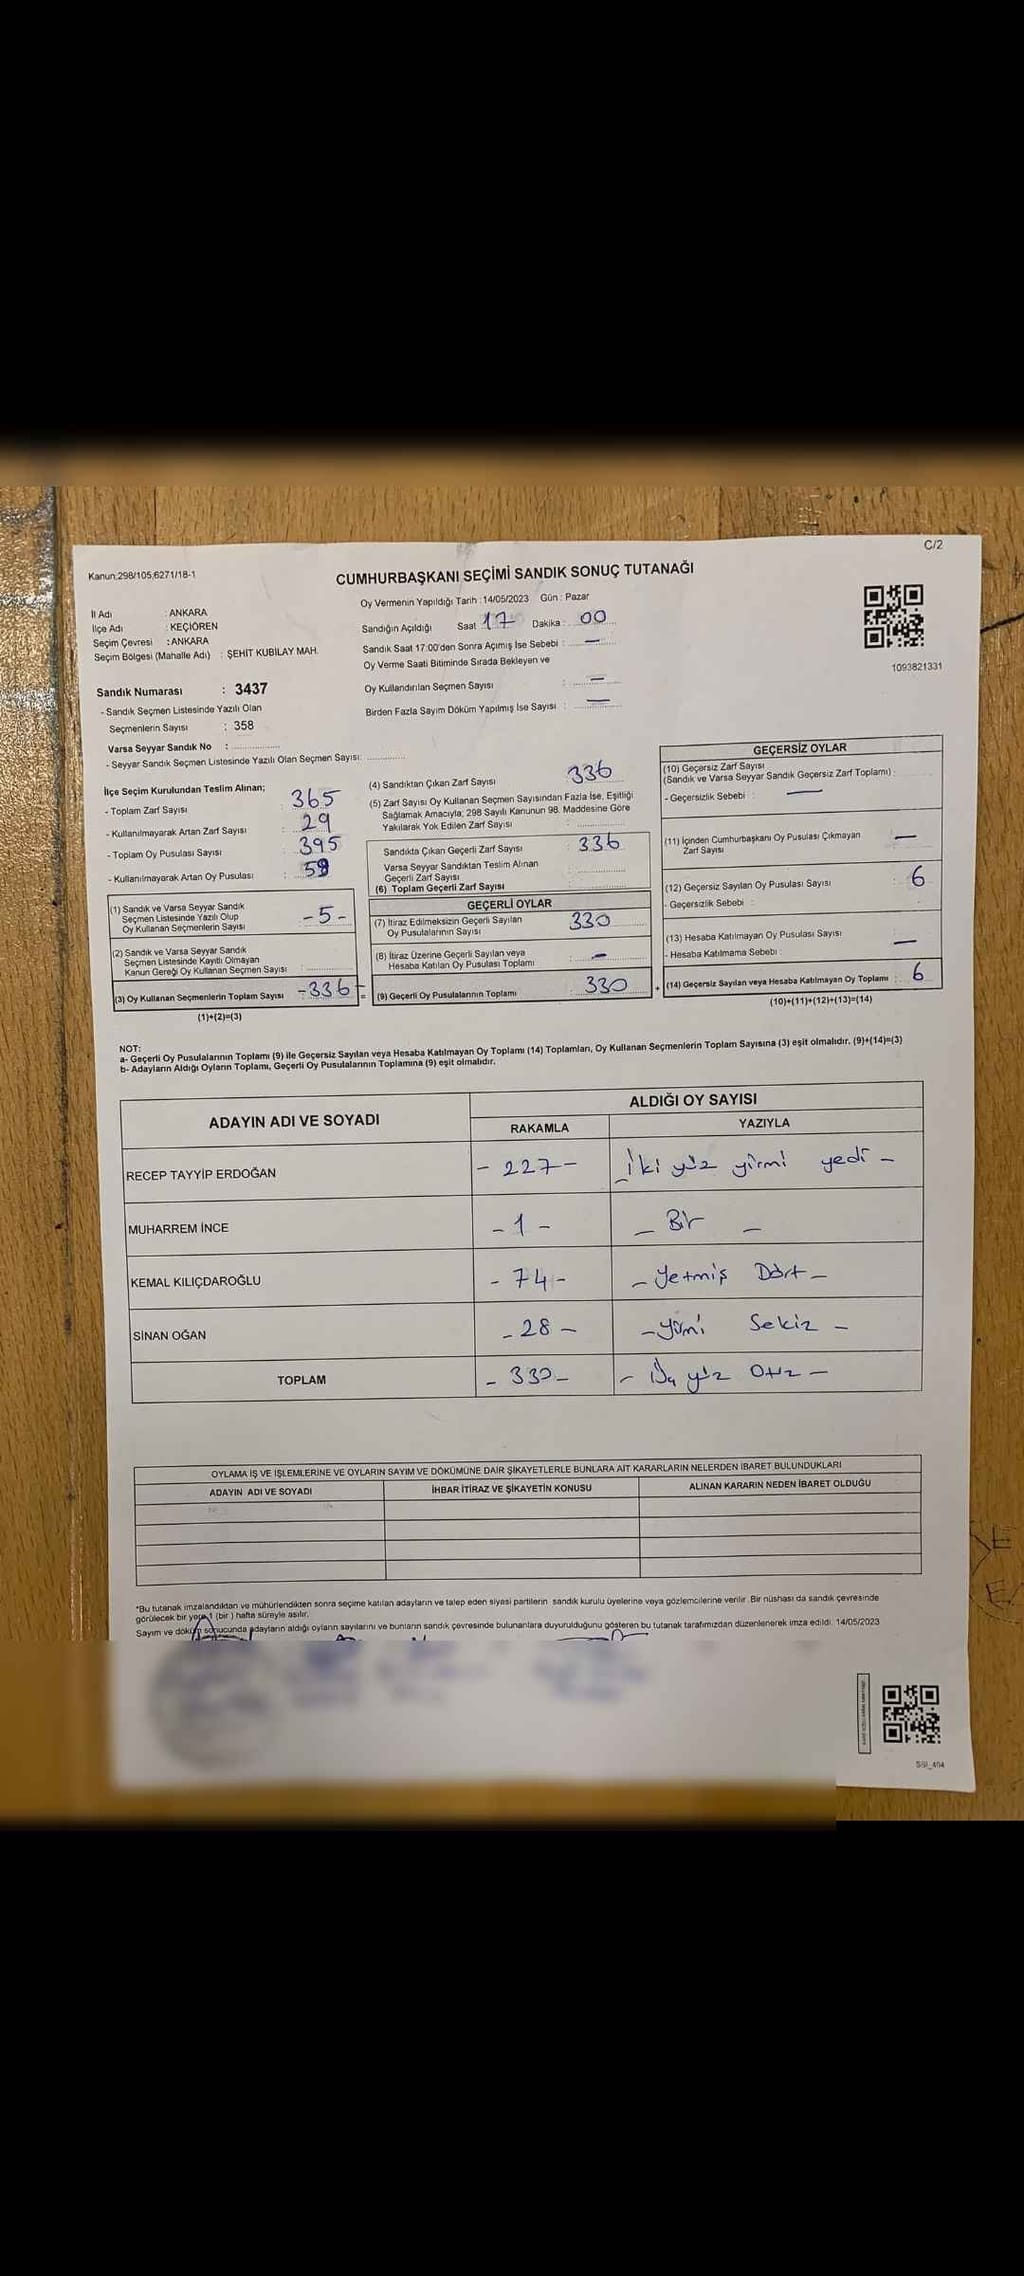 C/2
Kanun:298/105,6271/18-1
CUMHURBAŞKANI SEÇİMİ SANDIK SONUÇ TUTANAĞI
Oy Vermenin Yapıldığı Tarih : 14/05/2023 Gün : Pazar
İl Adı : ANKARA
İlçe Adı : KEÇİÖREN
Seçim Çevresi : ANKARA
Seçim Bölgesi (Mahalle Adı) : ŞEHİT KUBİLAY MAH.
Sandığın Açıldığı Saat 17 Dakika : 00
Sandık Saat 17:00'den Sonra Açımış İse Sebebi : —
Oy Verme Saati Bitiminde Sırada Bekleyen ve
Oy Kullandırılan Seçmen Sayısı : —
Birden Fazla Sayım Döküm Yapılmış İse Sayısı : —
1093821331
Sandık Numarası : 3437
- Sandık Seçmen Listesinde Yazılı Olan
Seçmenlerin Sayısı : 358
Varsa Seyyar Sandık No :
- Seyyar Sandık Seçmen Listesinde Yazılı Olan Seçmen Sayısı:
İlçe Seçim Kurulundan Teslim Alınan;
- Toplam Zarf Sayısı : 365
- Kullanılmayarak Artan Zarf Sayısı : 29
- Toplam Oy Pusulası Sayısı : 395
- Kullanılmayarak Artan Oy Pusulası :
(1) Sandık ve Varsa Seyyar Sandık
Seçmen Listesinde Yazılı Olup
Oy Kullanan Seçmenlerin Sayısı - 5 -
(2) Sandık ve Varsa Seyyar Sandık
Seçmen Listesinde Kayıtlı Olmayan
Kanun Gereği Oy Kullanan Seçmen Sayısı :
(3) Oy Kullanan Seçmenlerin Toplam Sayısı -336
(1)+(2)=(3)
(4) Sandıktan Çıkan Zarf Sayısı 336
(5) Zarf Sayısı Oy Kullanan Seçmen Sayısından Fazla İse, Eşitliği
Sağlamak Amacıyla; 298 Sayılı Kanunun 98. Maddesine Göre
Yakılarak Yok Edilen Zarf Sayısı :
Sandıkta Çıkan Geçerli Zarf Sayısı : 336
Varsa Seyyar Sandıktan Teslim Alınan
Geçerli Zarf Sayısı :
(6) Toplam Geçerli Zarf Sayısı
GEÇERLİ OYLAR
(7) İtiraz Edilmeksizin Geçerli Sayılan
Oy Pusulalarının Sayısı 330
(8) İtiraz Üzerine Geçerli Sayılan veya
Hesaba Katılan Oy Pusulası Toplamı : —
= (9) Geçerli Oy Pusulalarının Toplamı : 330
GEÇERSİZ OYLAR
(10) Geçersiz Zarf Sayısı
(Sandık ve Varsa Seyyar Sandık Geçersiz Zarf Toplamı) :
- Geçersizlik Sebebi : —
(11) İçinden Cumhurbaşkanı Oy Pusulası Çıkmayan
Zarf Sayısı —
(12) Geçersiz Sayılan Oy Pusulası Sayısı : 6
- Geçersizlik Sebebi :
(13) Hesaba Katılmayan Oy Pusulası Sayısı : —
- Hesaba Katılmama Sebebi :
+ (14) Geçersiz Sayılan veya Hesaba Katılmayan Oy Toplamı : 6
(10)+(11)+(12)+(13)=(14)
NOT:
a- Geçerli Oy Pusulalarının Toplamı (9) ile Geçersiz Sayılan veya Hesaba Katılmayan Oy Toplamı (14) Toplamları, Oy Kullanan Seçmenlerin Toplam Sayısına (3) eşit olmalıdır. (9)+(14)=(3)
b- Adayların Aldığı Oyların Toplamı, Geçerli Oy Pusulalarının Toplamına (9) eşit olmalıdır.
ADAYIN ADI VE SOYADI ALDIĞI OY SAYISI
RAKAMLA YAZIYLA
RECEP TAYYİP ERDOĞAN - 227 - İki yüz yirmi yedi -
MUHARREM İNCE - 1 - - Bir -
KEMAL KILIÇDAROĞLU - 74 - - Yetmiş Dört -
SİNAN OĞAN - 28 - - Yirmi Sekiz -
TOPLAM - 330 - - Üç yüz Otuz -
OYLAMA İŞ VE İŞLEMLERİNE VE OYLARIN SAYIM VE DÖKÜMÜNE DAİR ŞİKAYETLERLE BUNLARA AİT KARARLARIN NELERDEN İBARET BULUNDUKLARI
ADAYIN ADI VE SOYADI İHBAR İTİRAZ VE ŞİKAYETİN KONUSU ALINAN KARARIN NEDEN İBARET OLDUĞU
*Bu tutanak imzalandıktan ve mühürlendikten sonra seçime katılan adayların ve talep eden siyasi partilerin sandık kurulu üyelerine veya gözlemcilerine verilir. Bir nüshası da sandık çevresinde
görülecek bir yere 1 (bir ) hafta süreyle asılır.
Sayım ve döküm sonucunda adayların aldığı oyların sayılarını ve bunların sandık çevresinde bulunanlara duyurulduğunu gösteren bu tutanak tarafımızdan düzenlenerek imza edildi. 14/05/2023